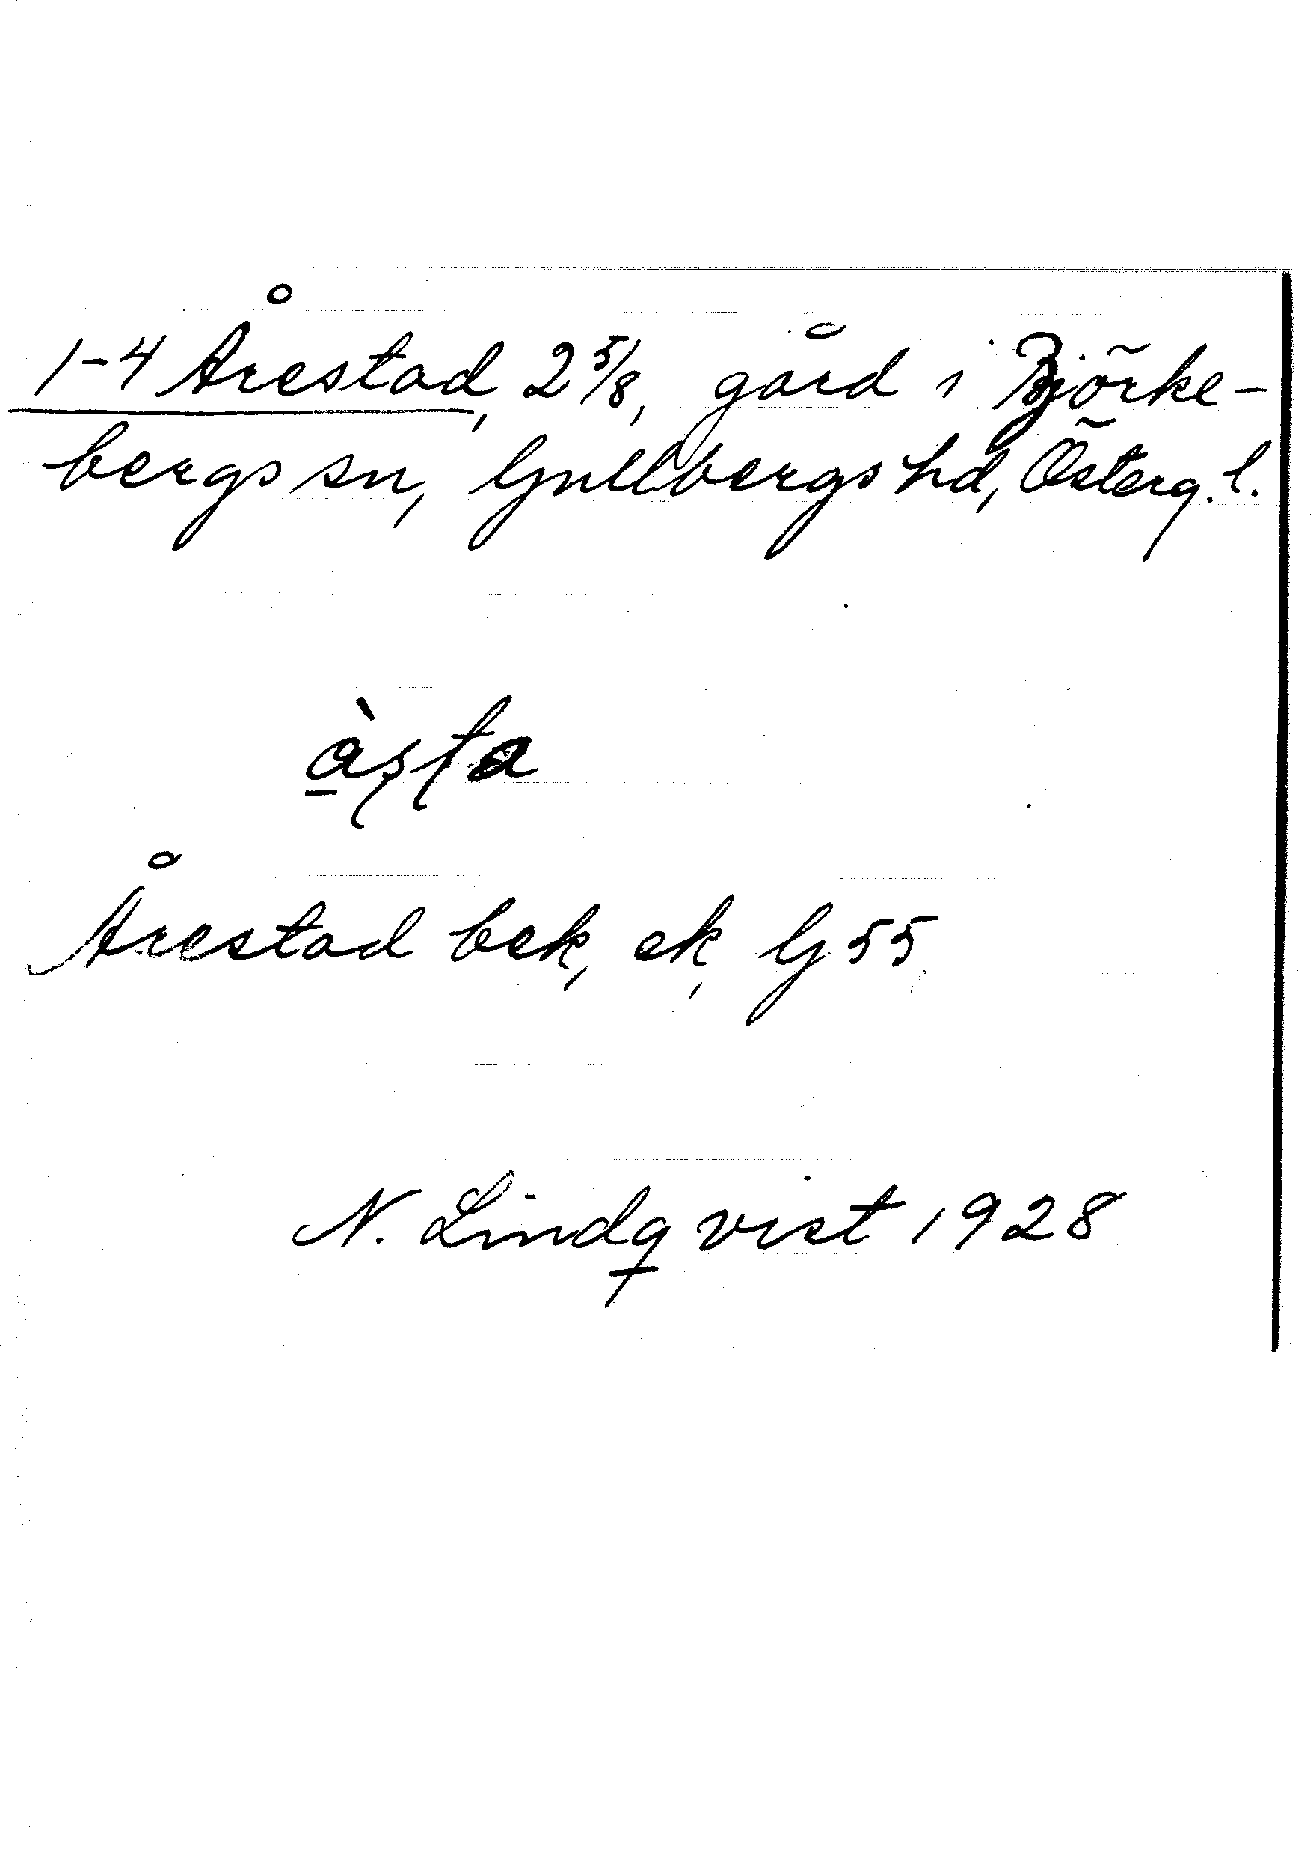 1-4 Årestad, 2 5/8, gård i Björke-
bergs sn, Gullbergs hd, Österg. l.
Årestad bek, ek, G 55
N. Lindqvist 1928